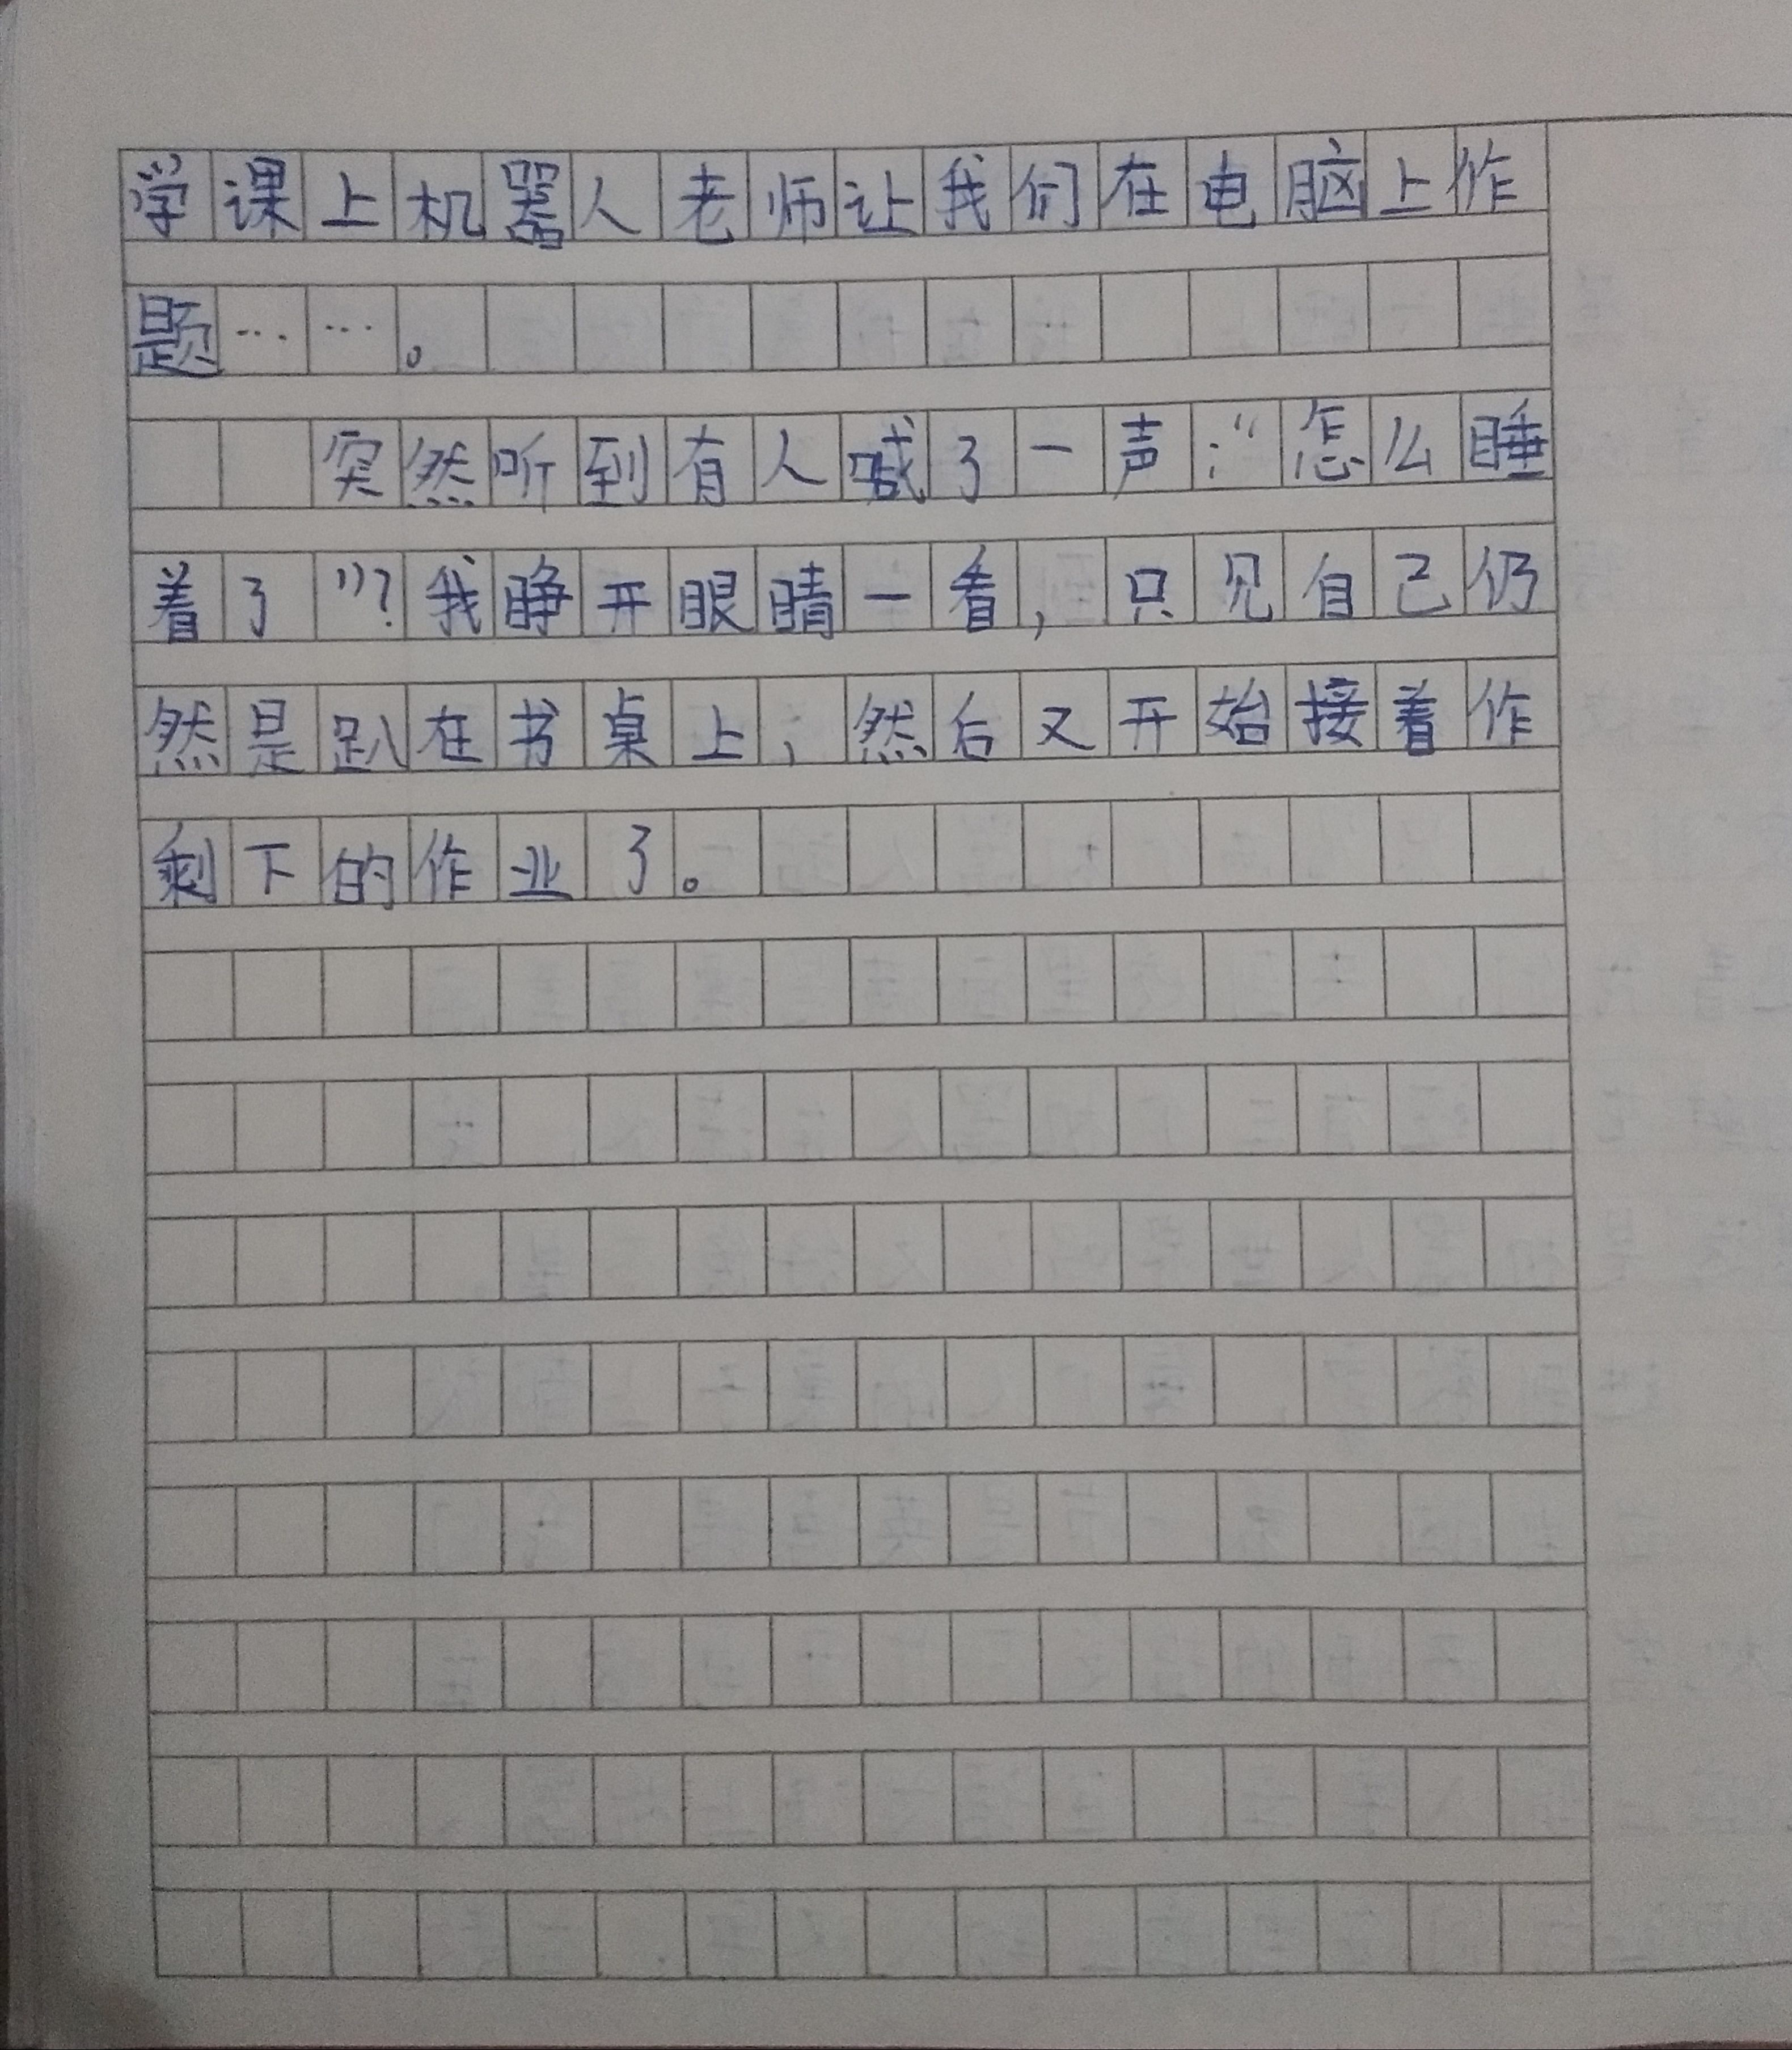 学课上机器人老师让我们在电脑上作
题……。
突然听到有人喊了一声:“怎么睡
着了”?我睁开眼睛一看,只见自己仍
然是趴在书桌上,然后又开始接着作
剩下的作业了。